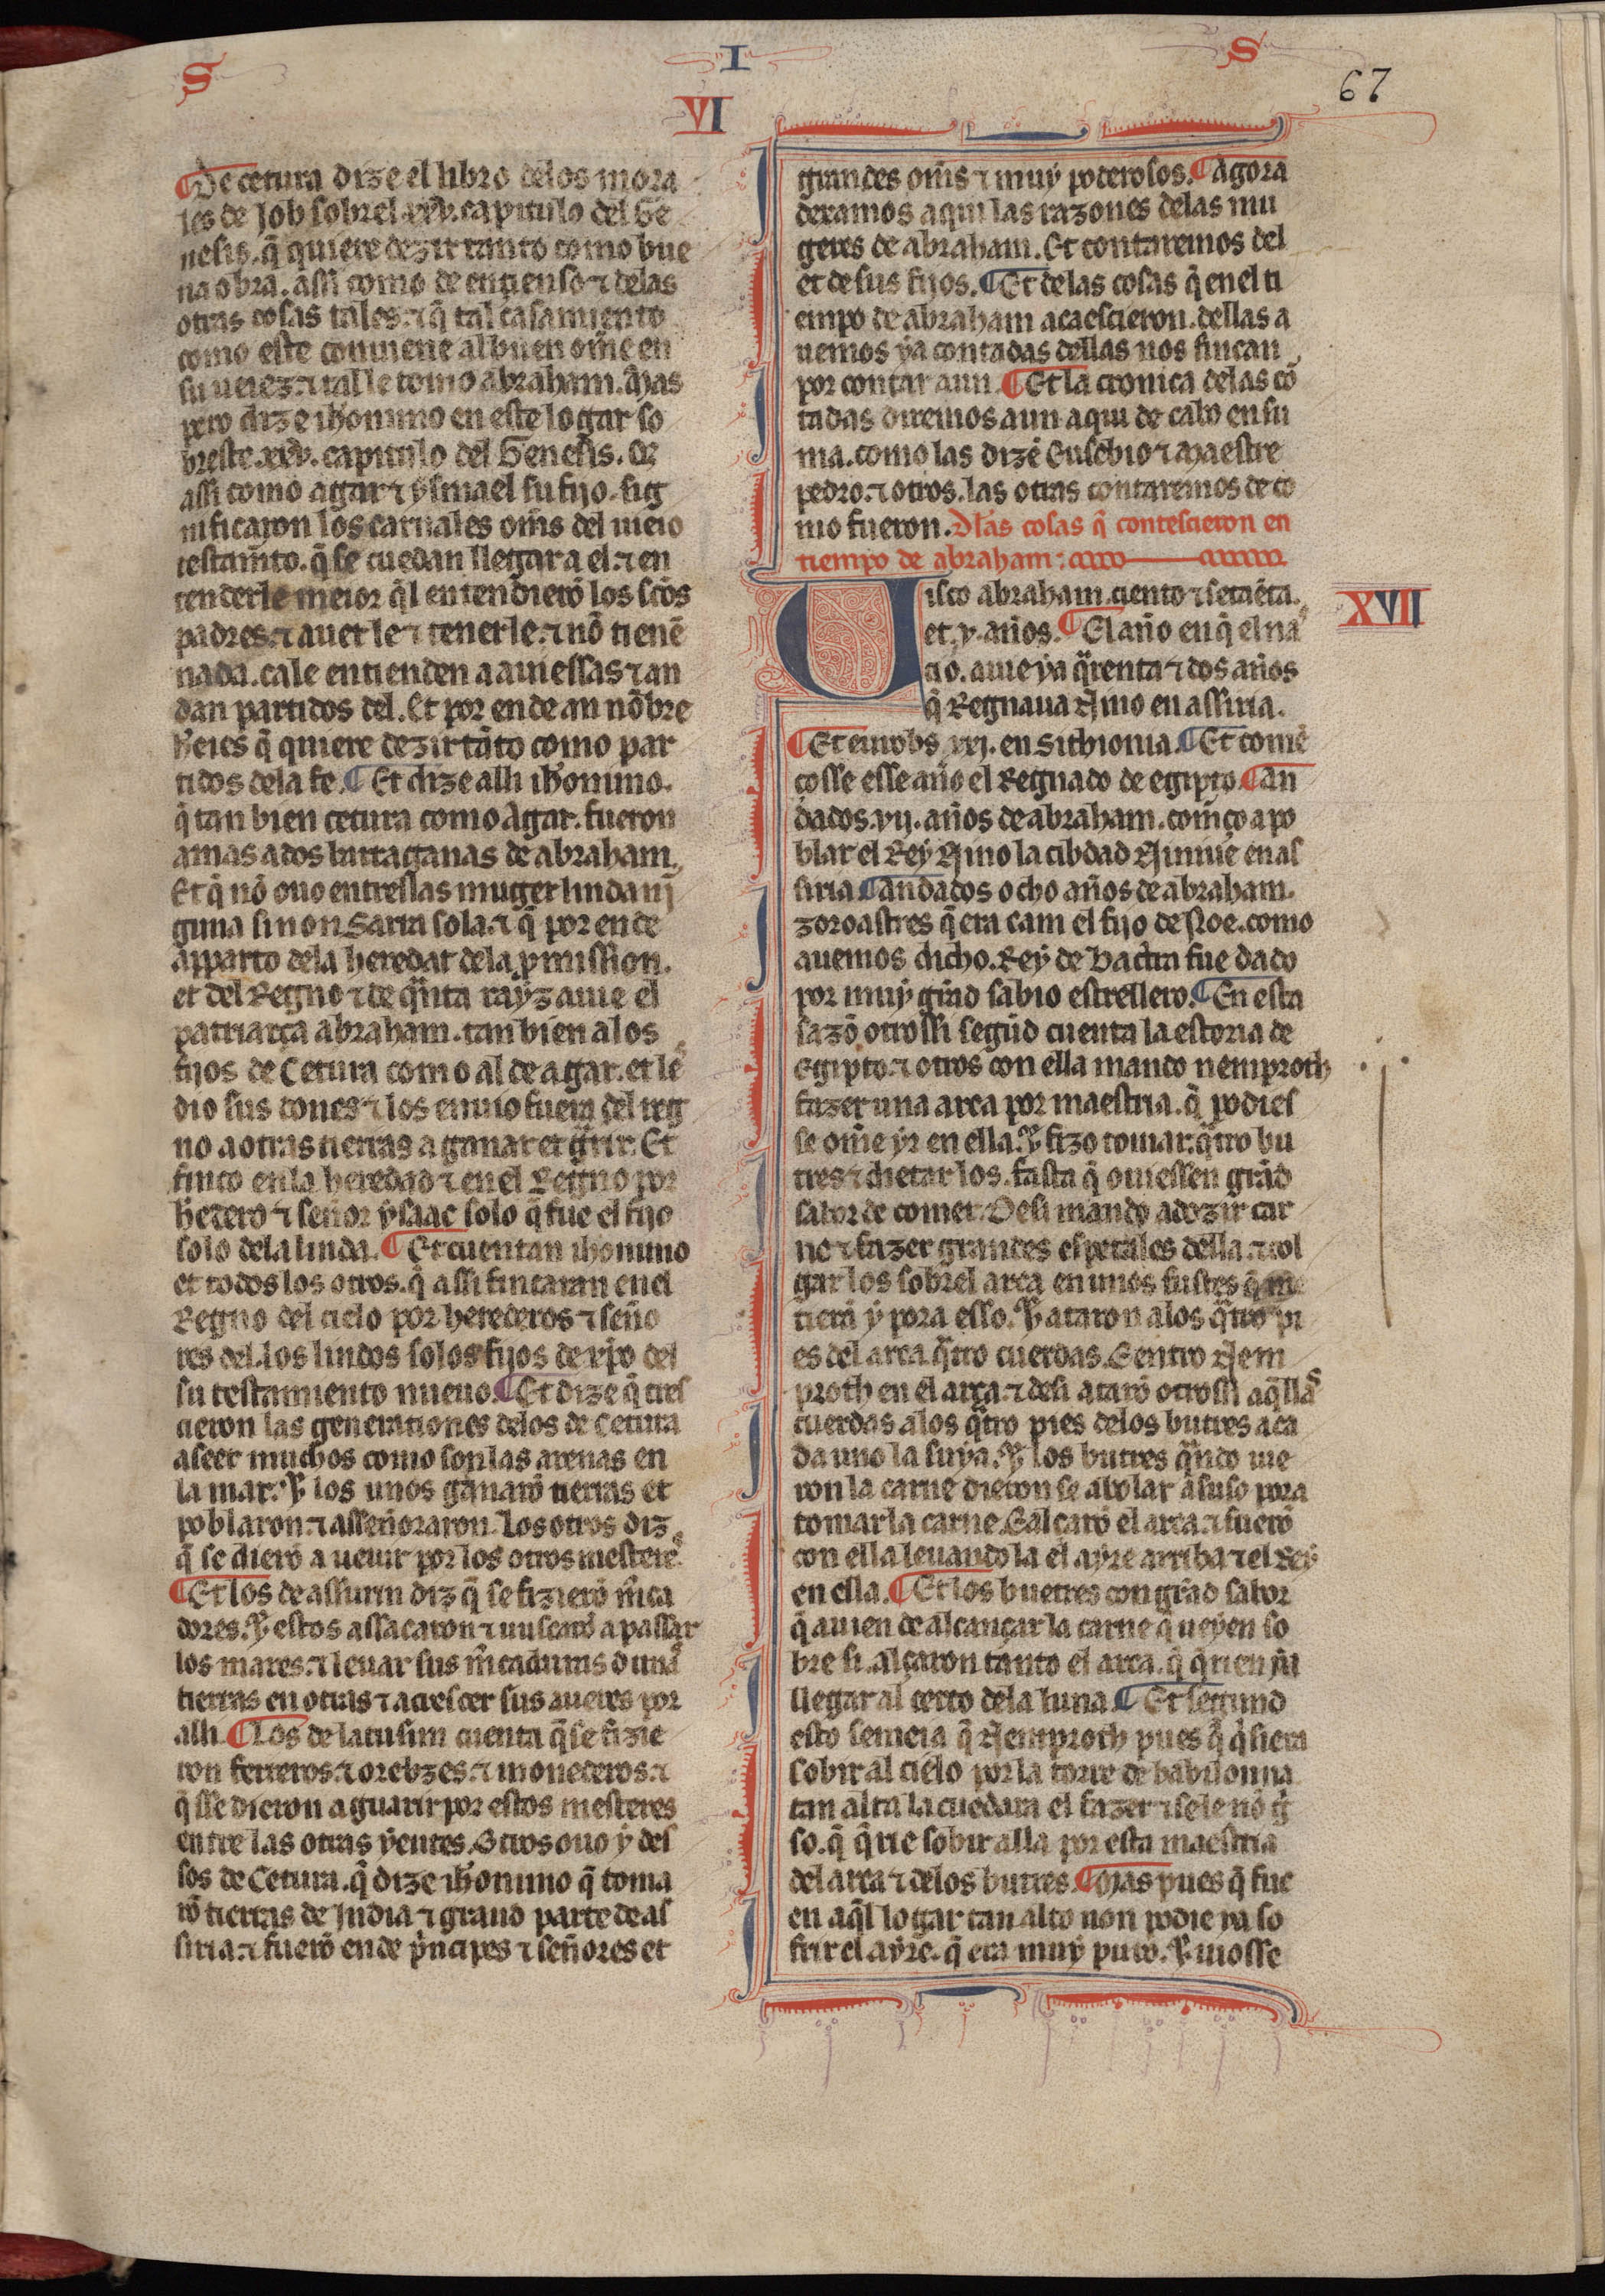 S I S
67
VI
¶De cetura dize el libro delos mora
les de Job sobrel xxv. capitulo del Ge
nesis. q̃ quiere dezir tanto como bue
na obra. assi como de encienso ⁊ delas
otras cosas tales. ⁊ q̃ tal casamiento
como este conuiene al buen om̃e en
su ueiez. ⁊ tal le tomo abraham. Mas
pero dize ih̃onimo en este logar so
breste .xxv. capitulo del Genesis. Q̃
assi como agar ⁊ ysmael su fijo. sig
nificaron los carnales om̃s del uieio
testam̃to. q̃ se cuedan llegar a el. ⁊ en
tenderle meior q̃l entendierõ los sc̃os
padres. ⁊ auerle ⁊ tenerle. ⁊ nõ tienẽ
nada. ca le entienden a auiessas ⁊ an
dan partidos del. Et por ende an nõbre
h̃eies q̃ quiere dezir tãto como par
tidos dela fe. ¶Et dize alli ih̃onimo.
q̃ tan bien cetura como Agar. fueron
amas ados barraganas de abraham.
Et q̃ nõ ouo entrellas muger linda nĩ
guna sinon Sarra sola. ⁊ q̃ por ende
apparto dela heredat dela p̃mission.
et del Regno ⁊ de q̃nta rayz auie el
patriarca abraham. tan bien alos
fijos de Cetura como al de agar. et les
dio sus dones ⁊ los enuio fuera del reg
no a otras tierras a ganar et q̃rir. Et
finco enla heredad ⁊ en el Regno por
heredero ⁊ señor ysaac solo q̃ fue el fijo
solo dela linda. ¶Et cuentan ih̃onimo
et todos los otros. q̃ assi fincaran en el
Regno del cielo por herederos ⁊ seño
res del. los lindos solos fijos de xp̃o del
su testamiento nueuo. ¶Et dize q̃ cres
cieron las generationes delos de Cetura
a seer muchos como son las arenas en
la mar. Y los unos ganarõ tierras et
poblaron ⁊ asseñoraron. Los otros diz
q̃ se dierõ a ueuir por los otros mesteres.
¶Et los de assurin diz q̃ se fizierõ m̃ca
dores. Y estos assacaron ⁊ buscarõ a passar
los mares. ⁊ leuar sus m̃caduras dunas
tierras en otras ⁊ acrescer sus aueres por
alli. ¶Los de latusim cuenta q̃ se fizie
ron ferreros. ⁊ orebzes. ⁊ monederos. ⁊
q̃ sse dieron a guarir por estos mesteres
entre las otras yentes. Otros ouo y des
sos de Cetura. q̃ dize ih̃onimo q̃ toma
rõ tierras de India ⁊ grand parte de as
siria. ⁊ fuerõ ende p̃ncipes ⁊ señores et
grandes om̃s ⁊ muy poderosos. ¶Agora
dexamos aqui las razones delas mu
geres de abraham. Et contaremos del
et de sus fijos. ¶Et delas cosas q̃ en el ti
empo de abraham acaescieron. dellas a
uemos ya contadas dellas nos fincan
por contar aun. ¶Et la cronica delas cõ
tadas diremos aun aqui de cabo en su
ma. como las dizẽ Eusebio ⁊ Maestre
pedro. ⁊ otros. las otras contaremos de co
mo fueron. Dlas cosas q̃ contescieron en
tiempo de abraham:
XVII
Uisco abraham. ciento ⁊ setaẽta.
et .v. años. ¶El año en q̃ el nas
cio. auie ya q̃renta ⁊ dos años
q̃ Regnaua Nino en assiria.
¶Et eurobs .xxj. en Sithionia. ¶Et comẽ
çosse esse año el Regnado de egipto. ¶An
dados .vij. años de abraham. comẽço a po
blar el Rey Nino la cibdad Niniue en as
siria. ¶Andados ocho años de abraham.
zoroastres q̃ era cam el fijo de Noe. como
auemos dicho. Rey de Bactra fue dado
por muy grãd sabio estrellero. ¶En esta
sazõ otrossi segũd cuenta la estoria de
Egipto. ⁊ otros con ella mando nemproth
fazer una arca por maestria. q̃ podies
se om̃e yr en ella. Y fizo tomar q̃tro bu
tres ⁊ dietarlos. fasta q̃ ouiessen grãd
sabor de comer. Desi mando adozir car
ne ⁊ fazer grandes espetales della. ⁊ col
garlos sobrel arca en unos fustes q̃ me
tiera y pora esso. Y ataron alos q̃tro pi
es del arca q̃tro cuerdas. Eentro Nem
proth en el arca. ⁊ desi atarõ otrossi aq̃llas
cuerdas alos q̃tro pies delos butres aca
da uno la suya. Y los butres q̃ndo uie
ron la carne dieron se abolar asuso pora
tomar la carne. Ealçarõ el arca. ⁊ fuerõ
con ella leuandola el ayre arriba ⁊ el Rey
en ella. ¶Et los buetres con grãd sabor
q̃ auien de alcançar la carne q̃ ueyen so
bre si. alçaron tanto el arca. q̃ q̃rien ya
llegar al cerco dela luna. ¶Et segund
esto semeia q̃ Nemproth pues q̃ q̃siera
sobir al cielo por la torre de babilonna
tan alta la cuedara el fazer ⁊ se le nõ g̃
so. q̃ q̃rie sobir alla por esta maestria
del arca ⁊ delos butres. ¶Mas pues q̃ fue
en aq̃l logar tan alto non podie ya so
frir el ayre. q̃ era muy puro. Y uiosse